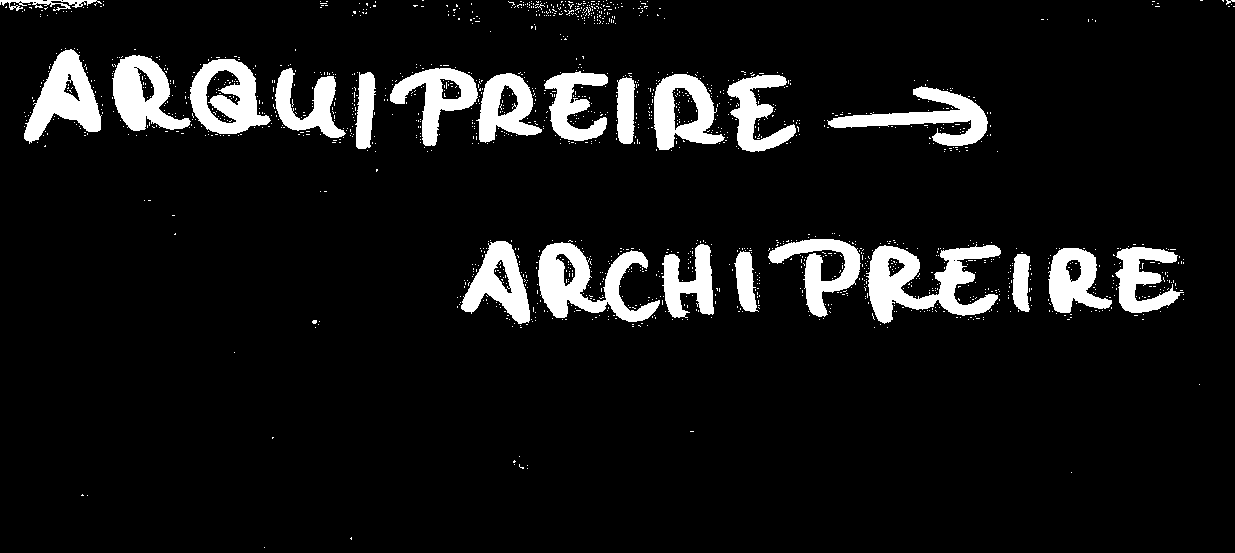 ARQUIPREIRE →
ARCHIPREIRE